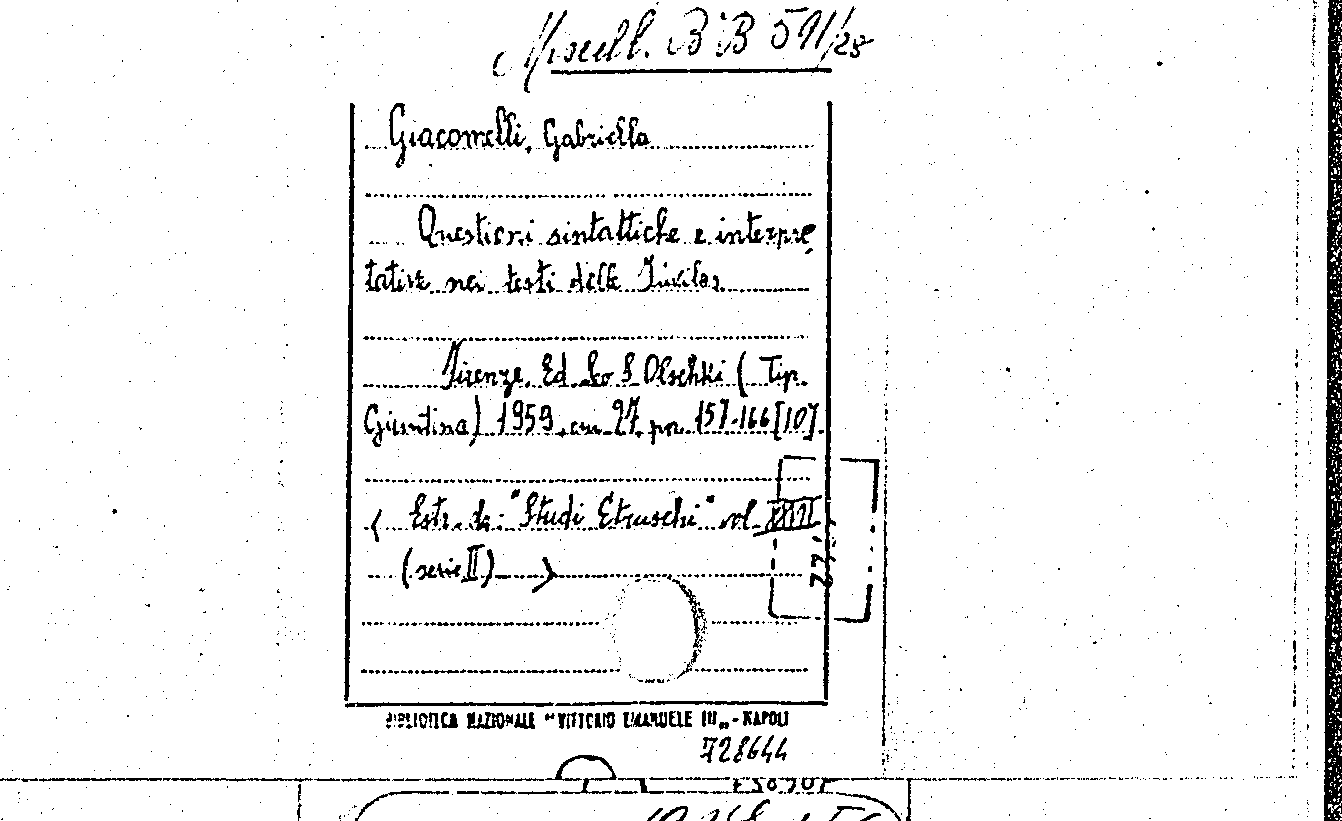 Miscell. B B 591/28
Giacomelli, Gabriella
Questioni sintattiche e interpre
tative nei testi delle Iuvilas
Firenze. Ed. Leo S Olschki (Tip.
Giuntina) 1959. cm 27. pp. 157-166 [10].
< Estr. da: "Studi Etruschi" vol. XXVII
(serie II) >
BIBLIOTECA NAZIONALE "VITTORIO EMANUELE III„ - NAPOLI
728644